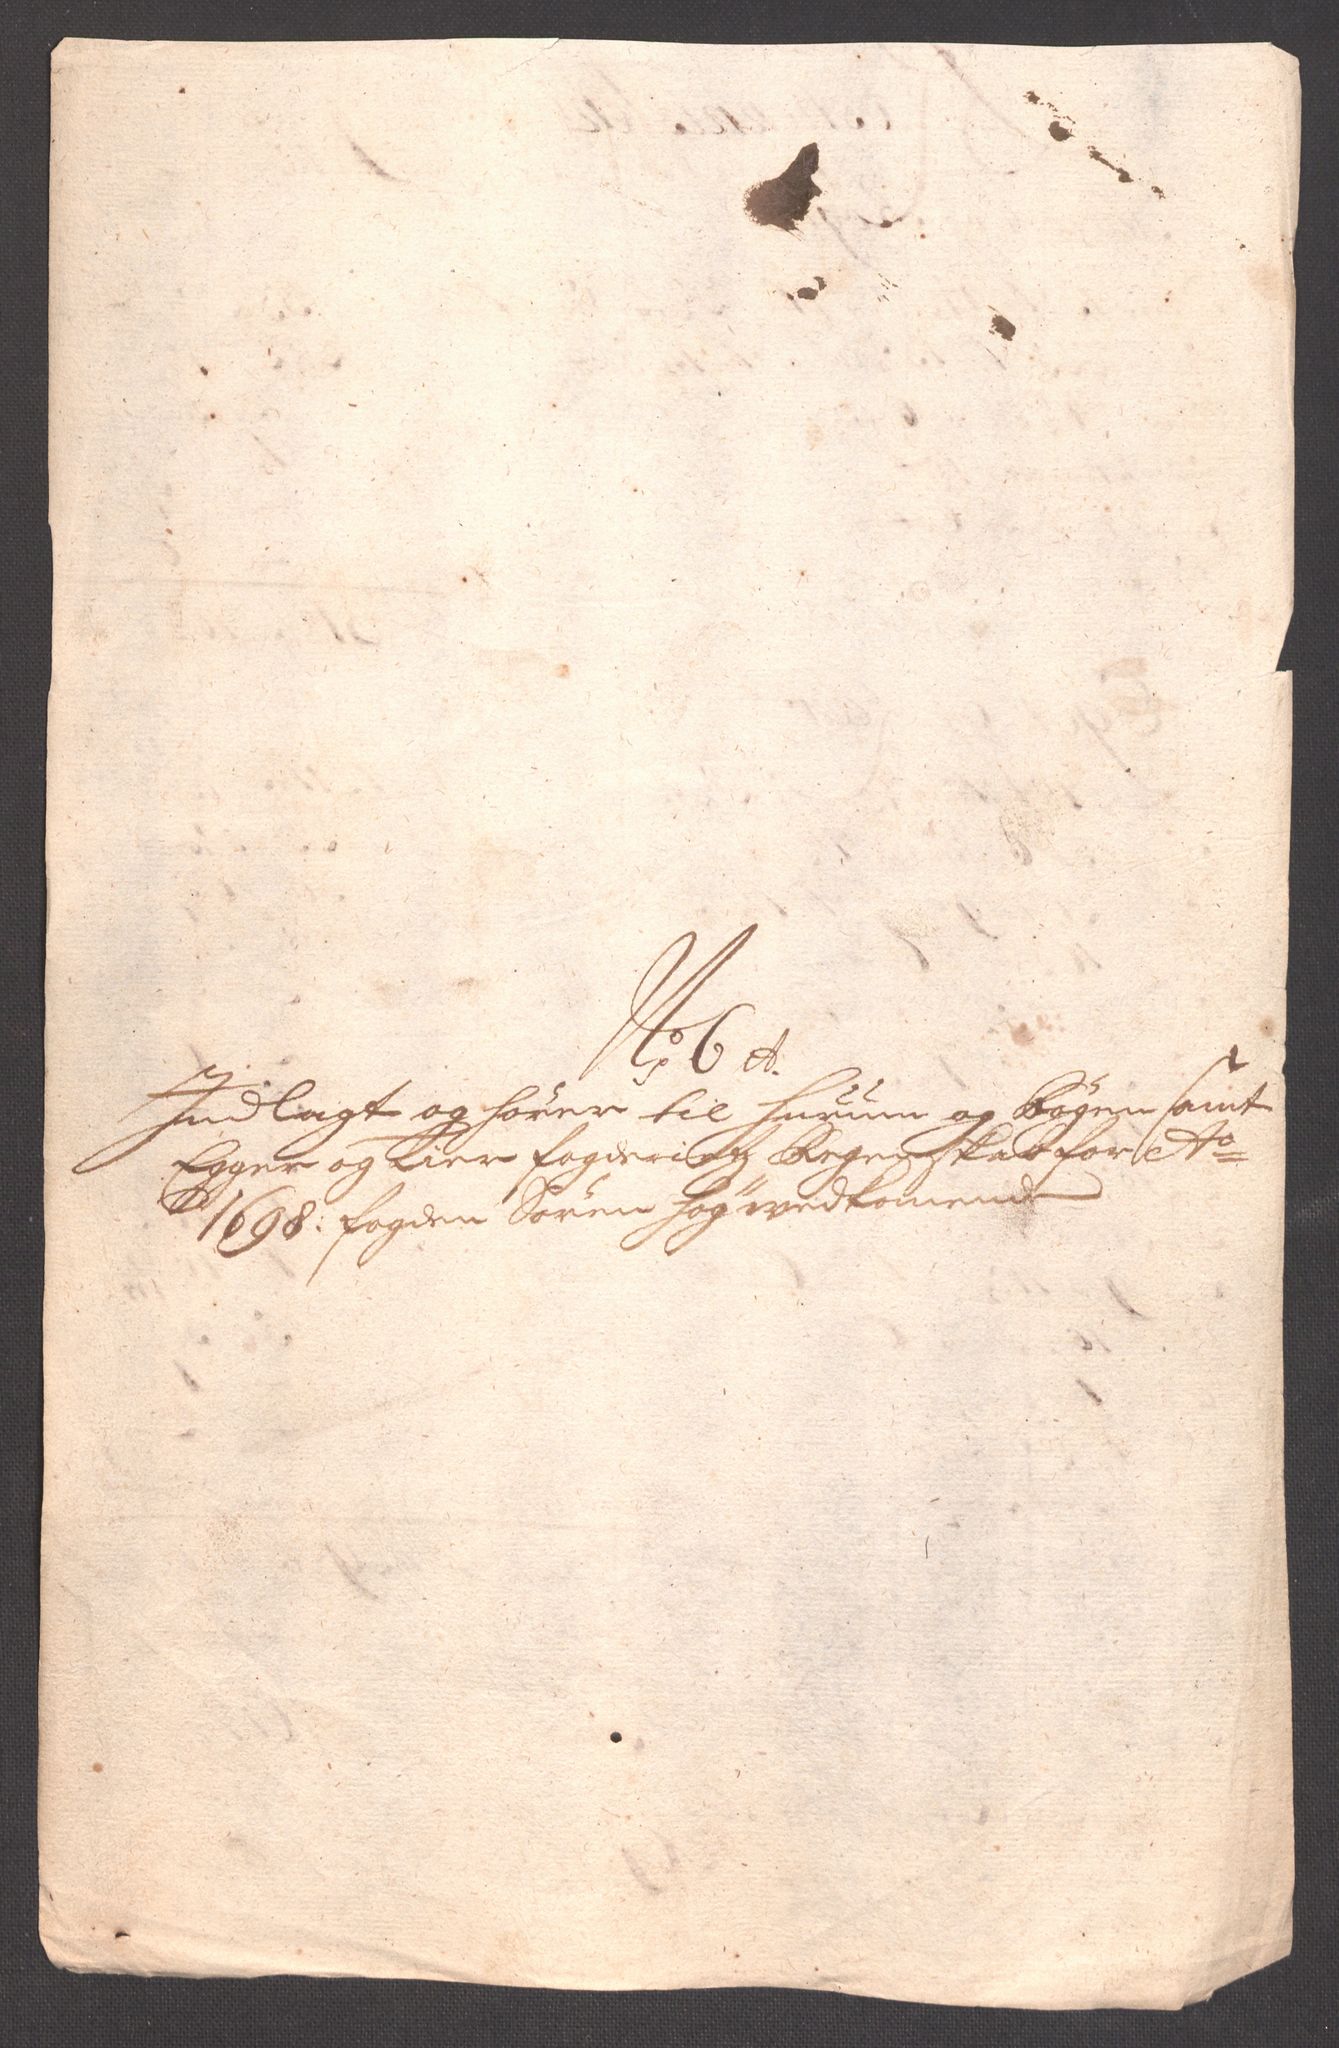 No 6 A.
Indlagt og hörer til Hurum og Rögen samt
Egger og Lier fogderietz Regenskab for Ao
1698: fogden Sören Hög wedkomend